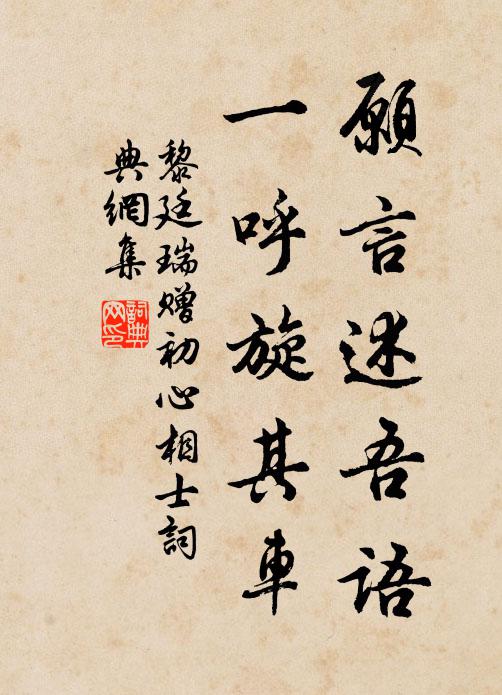 願言述吾語
一呼旋其車
黎廷瑞贈初心相士詞
典網集
詞典
网印